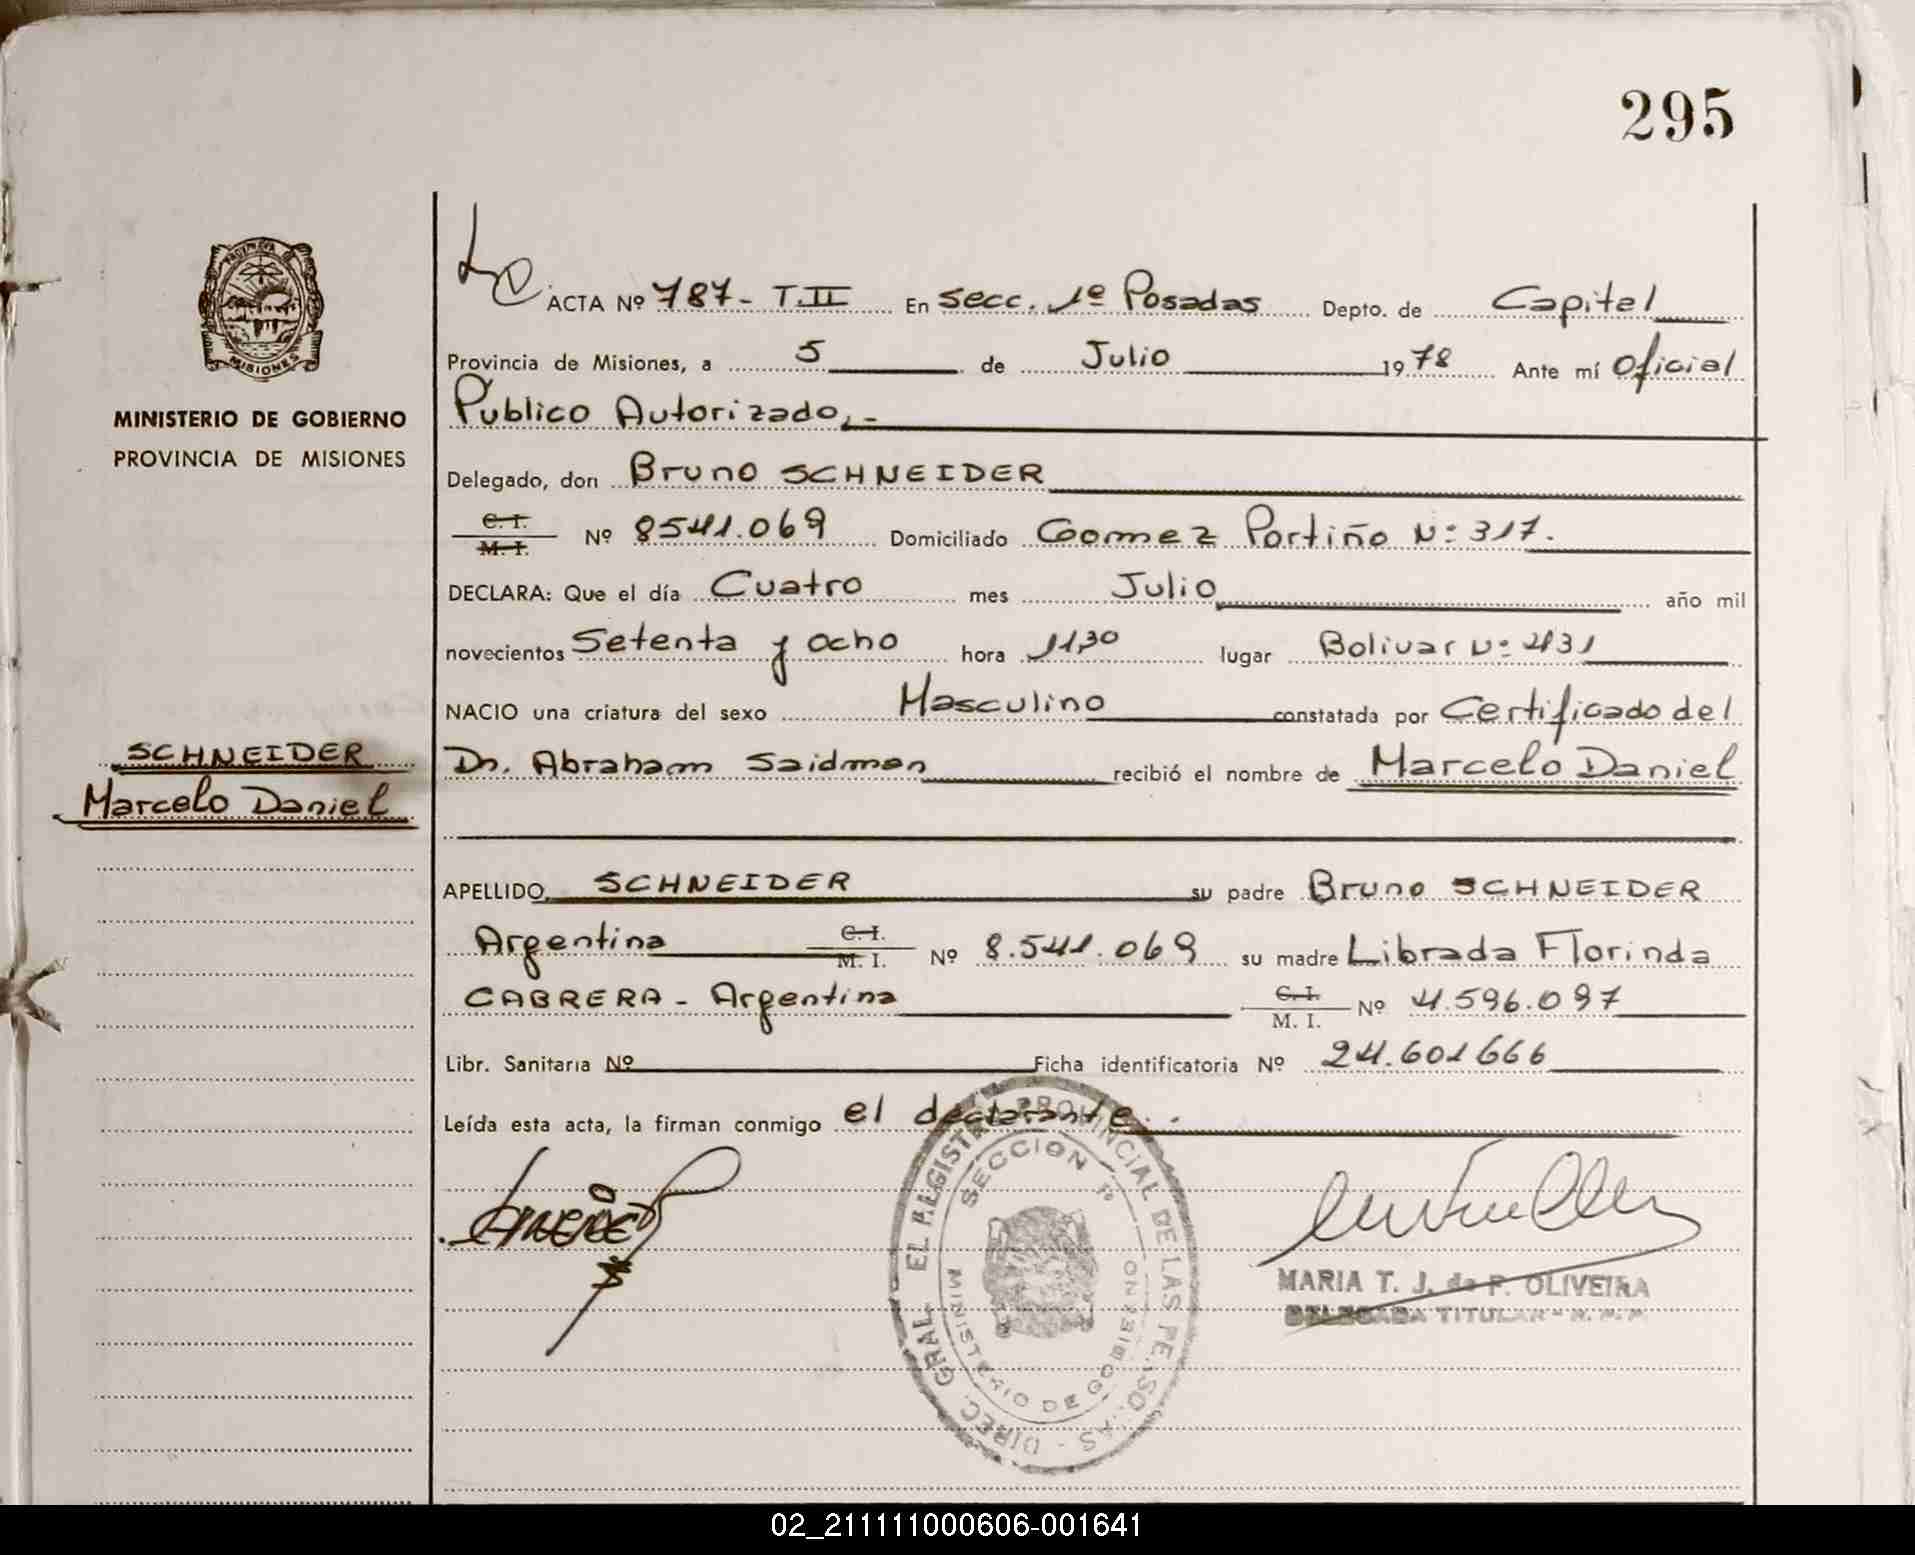 295
PROVINCIA DE
MISIONES
MINISTERIO DE GOBIERNO
PROVINCIA DE MISIONES
SCHNEIDER
Marcelo Daniel
ACTA Nº 787- T.II En Secc. 1º Posadas Depto. de Capital
Provincia de Misiones, a 5 de Julio 1978 Ante mí Oficial
Publico Autorizado,-
Delegado, don Bruno SCHNEIDER
C. I.
M. I. Nº 8541.069 Domiciliado Gomez Portiño Nº 317.
DECLARA: Que el día Cuatro mes Julio año mil
novecientos Setenta y Ocho hora 11,30 lugar Bolivar Nº 2131
NACIO una criatura del sexo Masculino constatada por Certificado del
Dr. Abraham Saidman recibió el nombre de Marcelo Daniel
APELLIDO SCHNEIDER su padre Bruno SCHNEIDER
Argentina C. I.
M. I. Nº 8.541.069 su madre Librada Florinda
CABRERA - Argentina C. I.
M. I. Nº 4.596.097
Libr. Sanitaria Nº Ficha identificatoria Nº 24.601666
Leída esta acta, la firman conmigo el declarante.
DIREC. GRAL. EL REGISTRO PROVINCIAL DE LAS PERSONAS
SECCION 1º
MINISTERIO DE GOBIERNO
MARIA T. J. de P. OLIVEIRA
DELEGADA TITULAR - R. P. P.
02_211111000606-001641